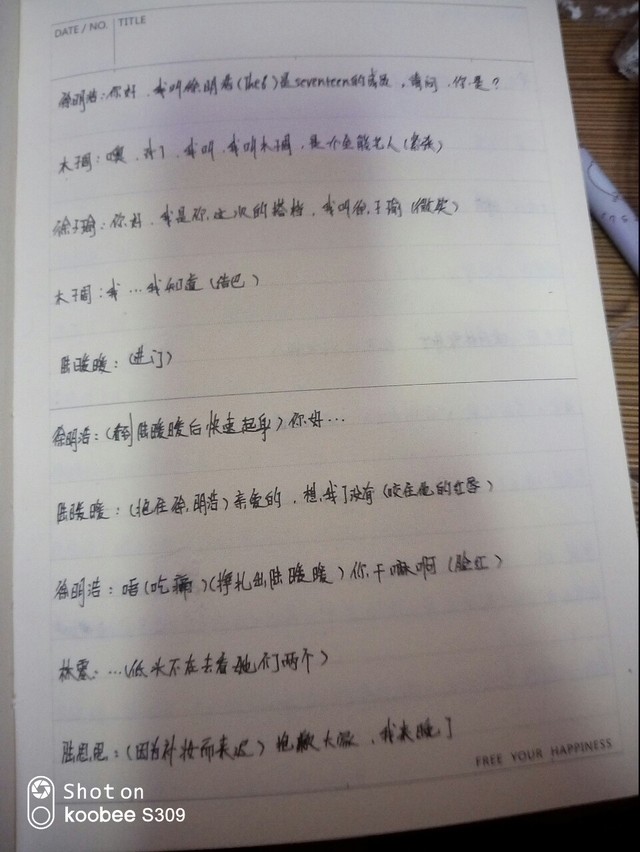 DATE / NO.
TITLE
徐明浩：你好，我叫徐明浩（The8）是seventeen的成员，请问，你是？
木子周：噢，对了，我叫，我叫木子周，是个全能艺人（紧张）
徐子瑜：你好，我是你这次的搭档，我叫徐子瑜（微笑）
木子周：我…我知道（结巴）
陆暖暖：（进门）
徐明浩：（看到陆暖暖后快速起身）你好…
陆暖暖：（抱住徐明浩）亲爱的，想我了没有（咬住他的红唇）
徐明浩：唔（吃痛）（挣扎出陆暖暖）你干嘛啊（脸红）
林：…（低头不在去看她们两个）
陆思思：（因为补妆而来迟）抱歉大家，我来晚了
FREE YOUR HAPPINESS
Shot on
koobee S309